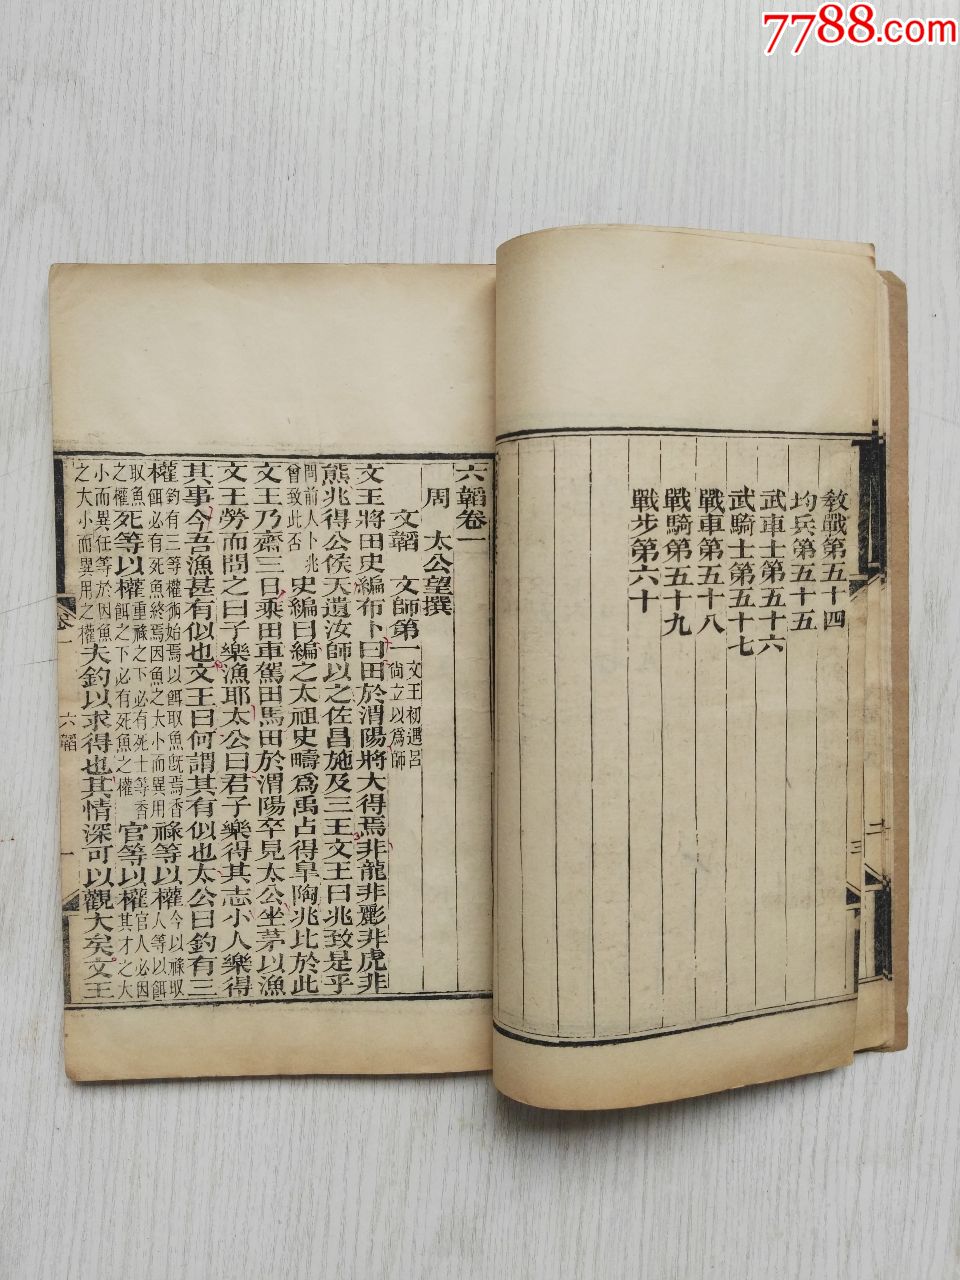 7788.com
教戰第五十四
均兵第五十五
武車士第五十六
武騎士第五十七
戰車第五十八
戰騎第五十九
戰步第六十
二
三
六韜卷一
周　太公望撰
文韜　文師第一 文王初遇呂尙立以爲師
文王將田史編布卜曰田於渭陽將大得焉非龍非彲非虎非
熊兆得公侯天遺汝師以之佐昌施及三王文王曰兆致是乎
問前人卜兆曾致此否 史編曰編之太祖史疇爲禹占得皐陶兆比於此
文王乃齋三日乘田車駕田馬田於渭陽卒見太公坐茅以漁
文王勞而問之曰子樂漁耶太公曰君子樂得其志小人樂得
其事今吾漁甚有似也文王曰何謂其有似也太公曰釣有三
權 釣有三等權術始焉以餌取魚旣焉香餌必有死魚終焉因魚之大小而異用 祿等以權 今以祿取人等以餌
取魚之權 死等以權 重祿之下必有死士等香餌之下必有死魚之權 官等以權 官人必因其才之大
小而異任等於因魚之大小而異用之權 夫釣以求得也其情深可以觀大矣文王
卷一
六韜
一